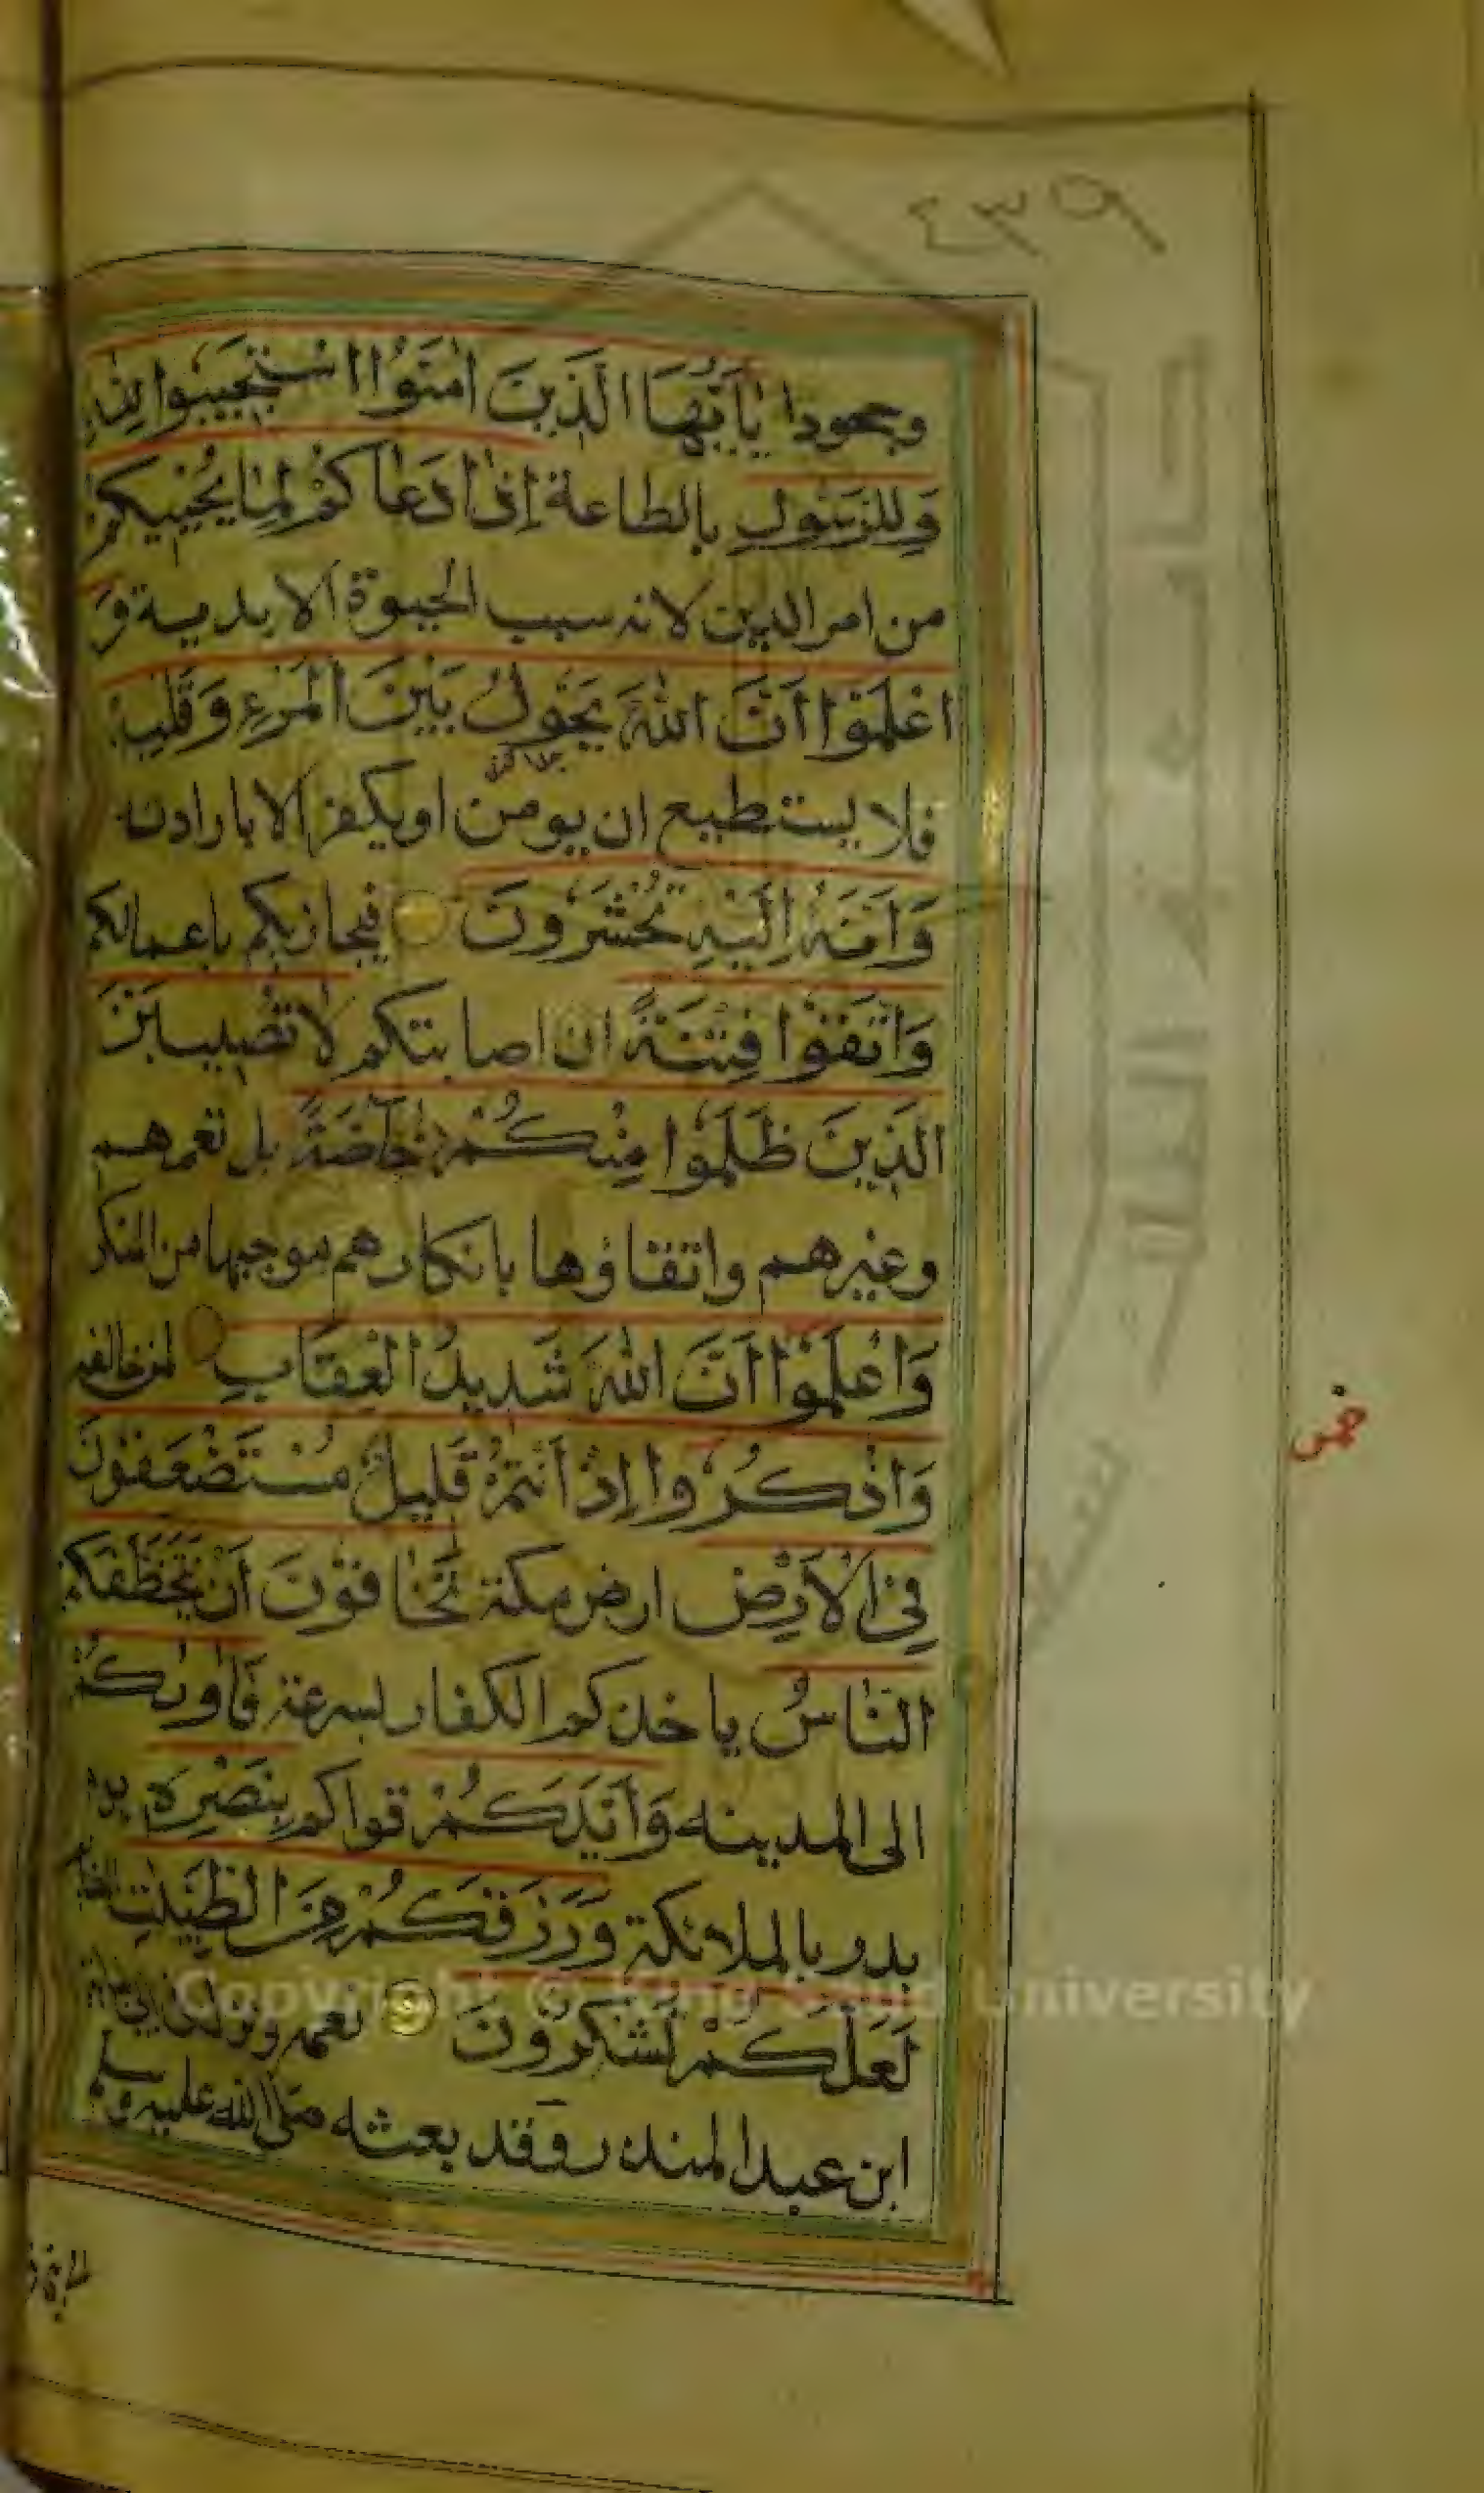 ٤٣٩
وجحودا يٰأَيُّهَا الَّذِينَ اٰمَنُوا اسْتَجِيبُوا لِلّٰهِ
وَلِلرَّسُولِ بالطاعة إِذَا دَعَاكُمْ لِمَا يُحْيِيكُمْ
من امر الدين لانه سبب الحيوة الابدية وَ
اعْلَمُوا أَنَّ اللّٰهَ يَحُولُ بَيْنَ الْمَرْءِ وَقَلْبِهِ
فلا يستطيع ان يومن او يكفر الا بارادته
وَأَنَّهُ إِلَيْهِ تُحْشَرُونَ فيجازيكم باعمالكم
وَاتَّقُوا فِتْنَةً ان اصابتكم لَا تُصِيبَنَّ
الَّذِينَ ظَلَمُوا مِنْكُمْ خَاصَّةً بل تعمهم
وغيرهم واتقاؤها بانكارهم موجبها من المنكر
وَاعْلَمُوا أَنَّ اللّٰهَ شَدِيدُ الْعِقَابِ لمن خالفه
وَاذْكُرُوا إِذْ أَنْتُمْ قَلِيلٌ مُسْتَضْعَفُونَ
خمس
فِي الْأَرْضِ ارض مكة تَخَافُونَ أَنْ يَتَخَطَّفَكُمُ
النَّاسُ ياخذكم الكفار بسرعة فَاٰوٰىكُمْ
الى المدينه وَأَيَّدَكُمْ قواكم بِنَصْرِهِ يوم
بدر بالملائكة وَرَزَقَكُمْ مِنَ الطَّيِّبٰتِ الغنائم
لَعَلَّكُمْ تَشْكُرُونَ نعمه ونزل في ابي لبابة
ابن عبد المنذر وقد بعثه صلى الله عليه وسلم
Copyright © King Saud University